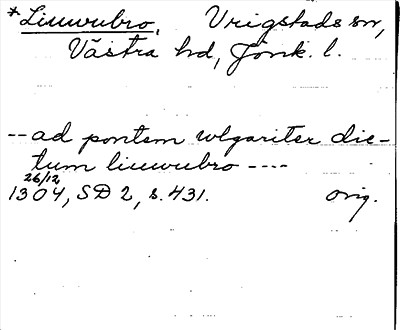 *Liuwubro, Vrigstads sn,
Västra hd, Jönk. l.
-- ad pontem wlgariter dic-
tum liuwubro ----
26/12
1304, SD 2, s. 431. orig.